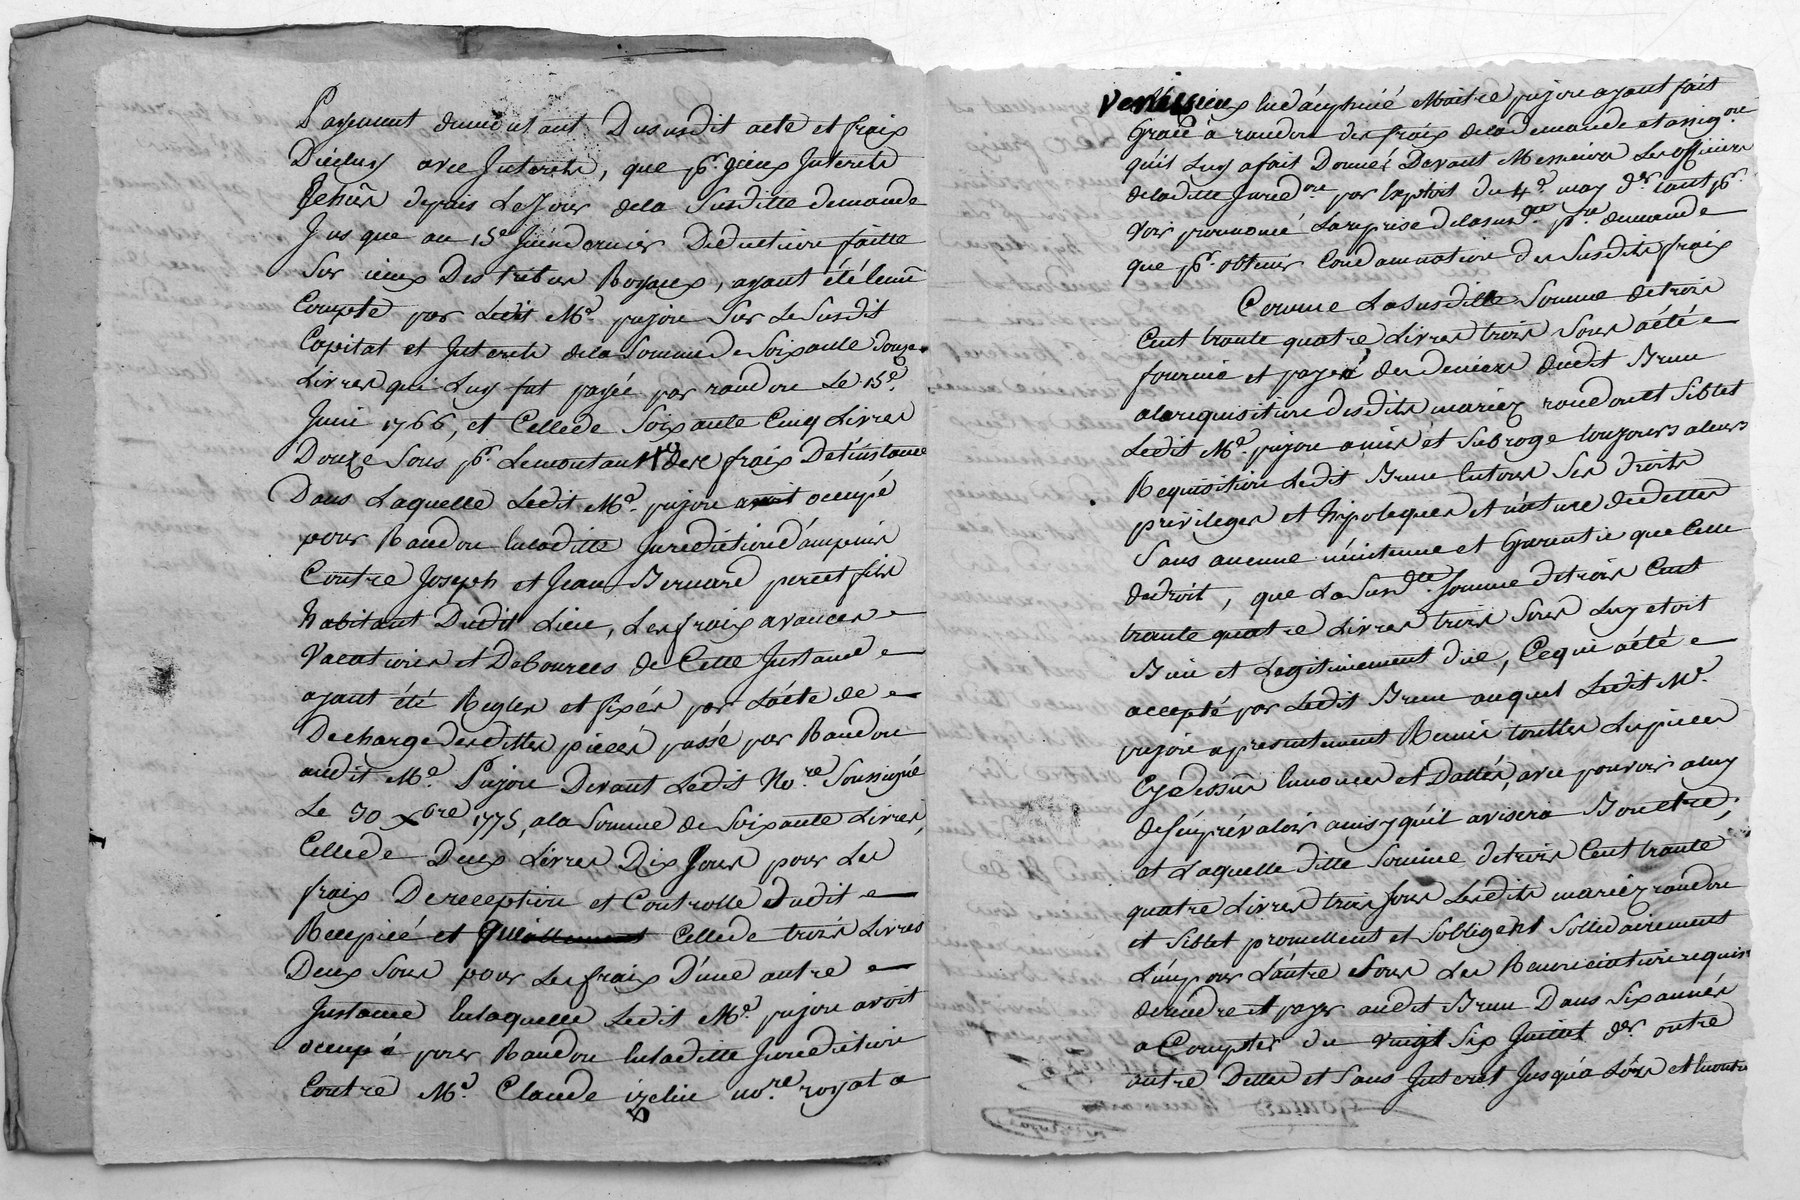 Payement du montant Du susdit acte et fraix
D'iceluy avec Interets, que pr. yceux Interets
Echûs depuis Le Jour dela Susditte demande
Jusque au 15e Juin dernier Deduction faitte
Sur iceux Des tributs Royaux, ayant été tenû
Compte par Ledit Me. pujou Sur Le Susdit
Capital et Interets dela Somme de Soixante douze
Livres qui Luy fut payée par raudon Le 15e.
Juin 1766, et Celle de Soixante Cinq Livres
Douze Sous pr. Le montant des fraix De L'instance
Dans Laquelle Ledit Me. pujou avoit occupé
pour Raudon en laditte Jurediction d'ampuis
Contre Joseph et Jean Bernard pere et fils
habitant Dudit Lieu, Les fraix avances
Vacations et Debources de Cette Instance
ayant été Regles et fixés par L'acte de
Decharge des dittes pieces passé par Raudon
audit Me. Pujou Devant Ledit Nore. Soussigné
Le 30 xbre 1775, a la Somme de Soixante Livres,
Celle de Deux Livres Dix Sous pour Les
fraix De reception et Controlle dudit
Recepicé et Celle de trois Livres
Deux Sous pour Les fraix D'une autre
Instance en laquelle Ledit Me. pujou avoit
occupé pour Raudon en laditte Jurediction
Contre Me. Claude nore. royal a
en dauphiné Maitre pujou ayant fait
Grace à raudon des fraix dela demande et assigon
qu'il Luy a fait Donner Devant Messieurs Les officiers
de laditte Juredon. par Exploit du 4e. may der tant pr.
voir prononcé La reprise de la susdte pre demande
que pr. obtenir Condamnation des Susdits fraix
Comme La susditte Somme de trois
Cent trante quatre Livres trois Sous a été
fournie et payée des deniers dudit Brun
a la requisition desdits mariez raudon et Siblet
Ledit Me. pujou a mis et Subroge toujours a leurs
Requisition Ledit Brun en tous Ses droits
privileges et hipoteques et nature de dettes
Sans aucune maintenue et Garentie que Celle
de droit, que La Susdtte. Somme de trois Cent
trante quatre Livres trois Sous Luy etoit
Bien et Legitimement düe, Ce qui a été
accepté par Ledit Brun auquel Ledit Me.
pujou a presentement Remis touttes Les pieces
Cy dessûs enoncées et Dattés, avec pouvoir a luy
de s'en prévaloir ainsy qu'il avisera Bon etre;
et Laquelle ditte Somme de trois Cent trante
quatre Livres trois Sous Lesdits mariez raudon
et Siblet promettent et S'obligent Sollidairement
L'un pour L'autre Sous Les Renonciations requises
de rendre et payer audit Brun Dans Six années
a Compter du vingt Six Juillet der outre